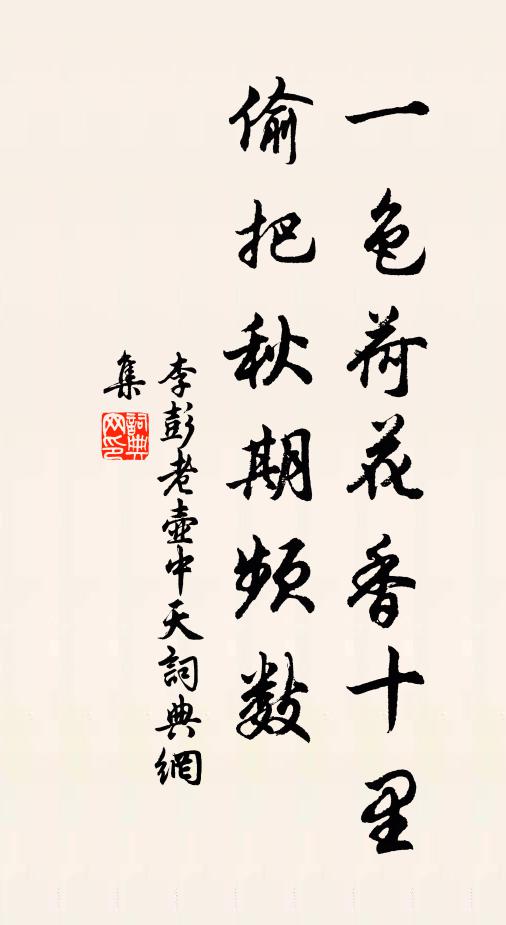 一色荷花香十里
偷把秋期頻數
李彭老壺中天詞典網
集
詞典
网印